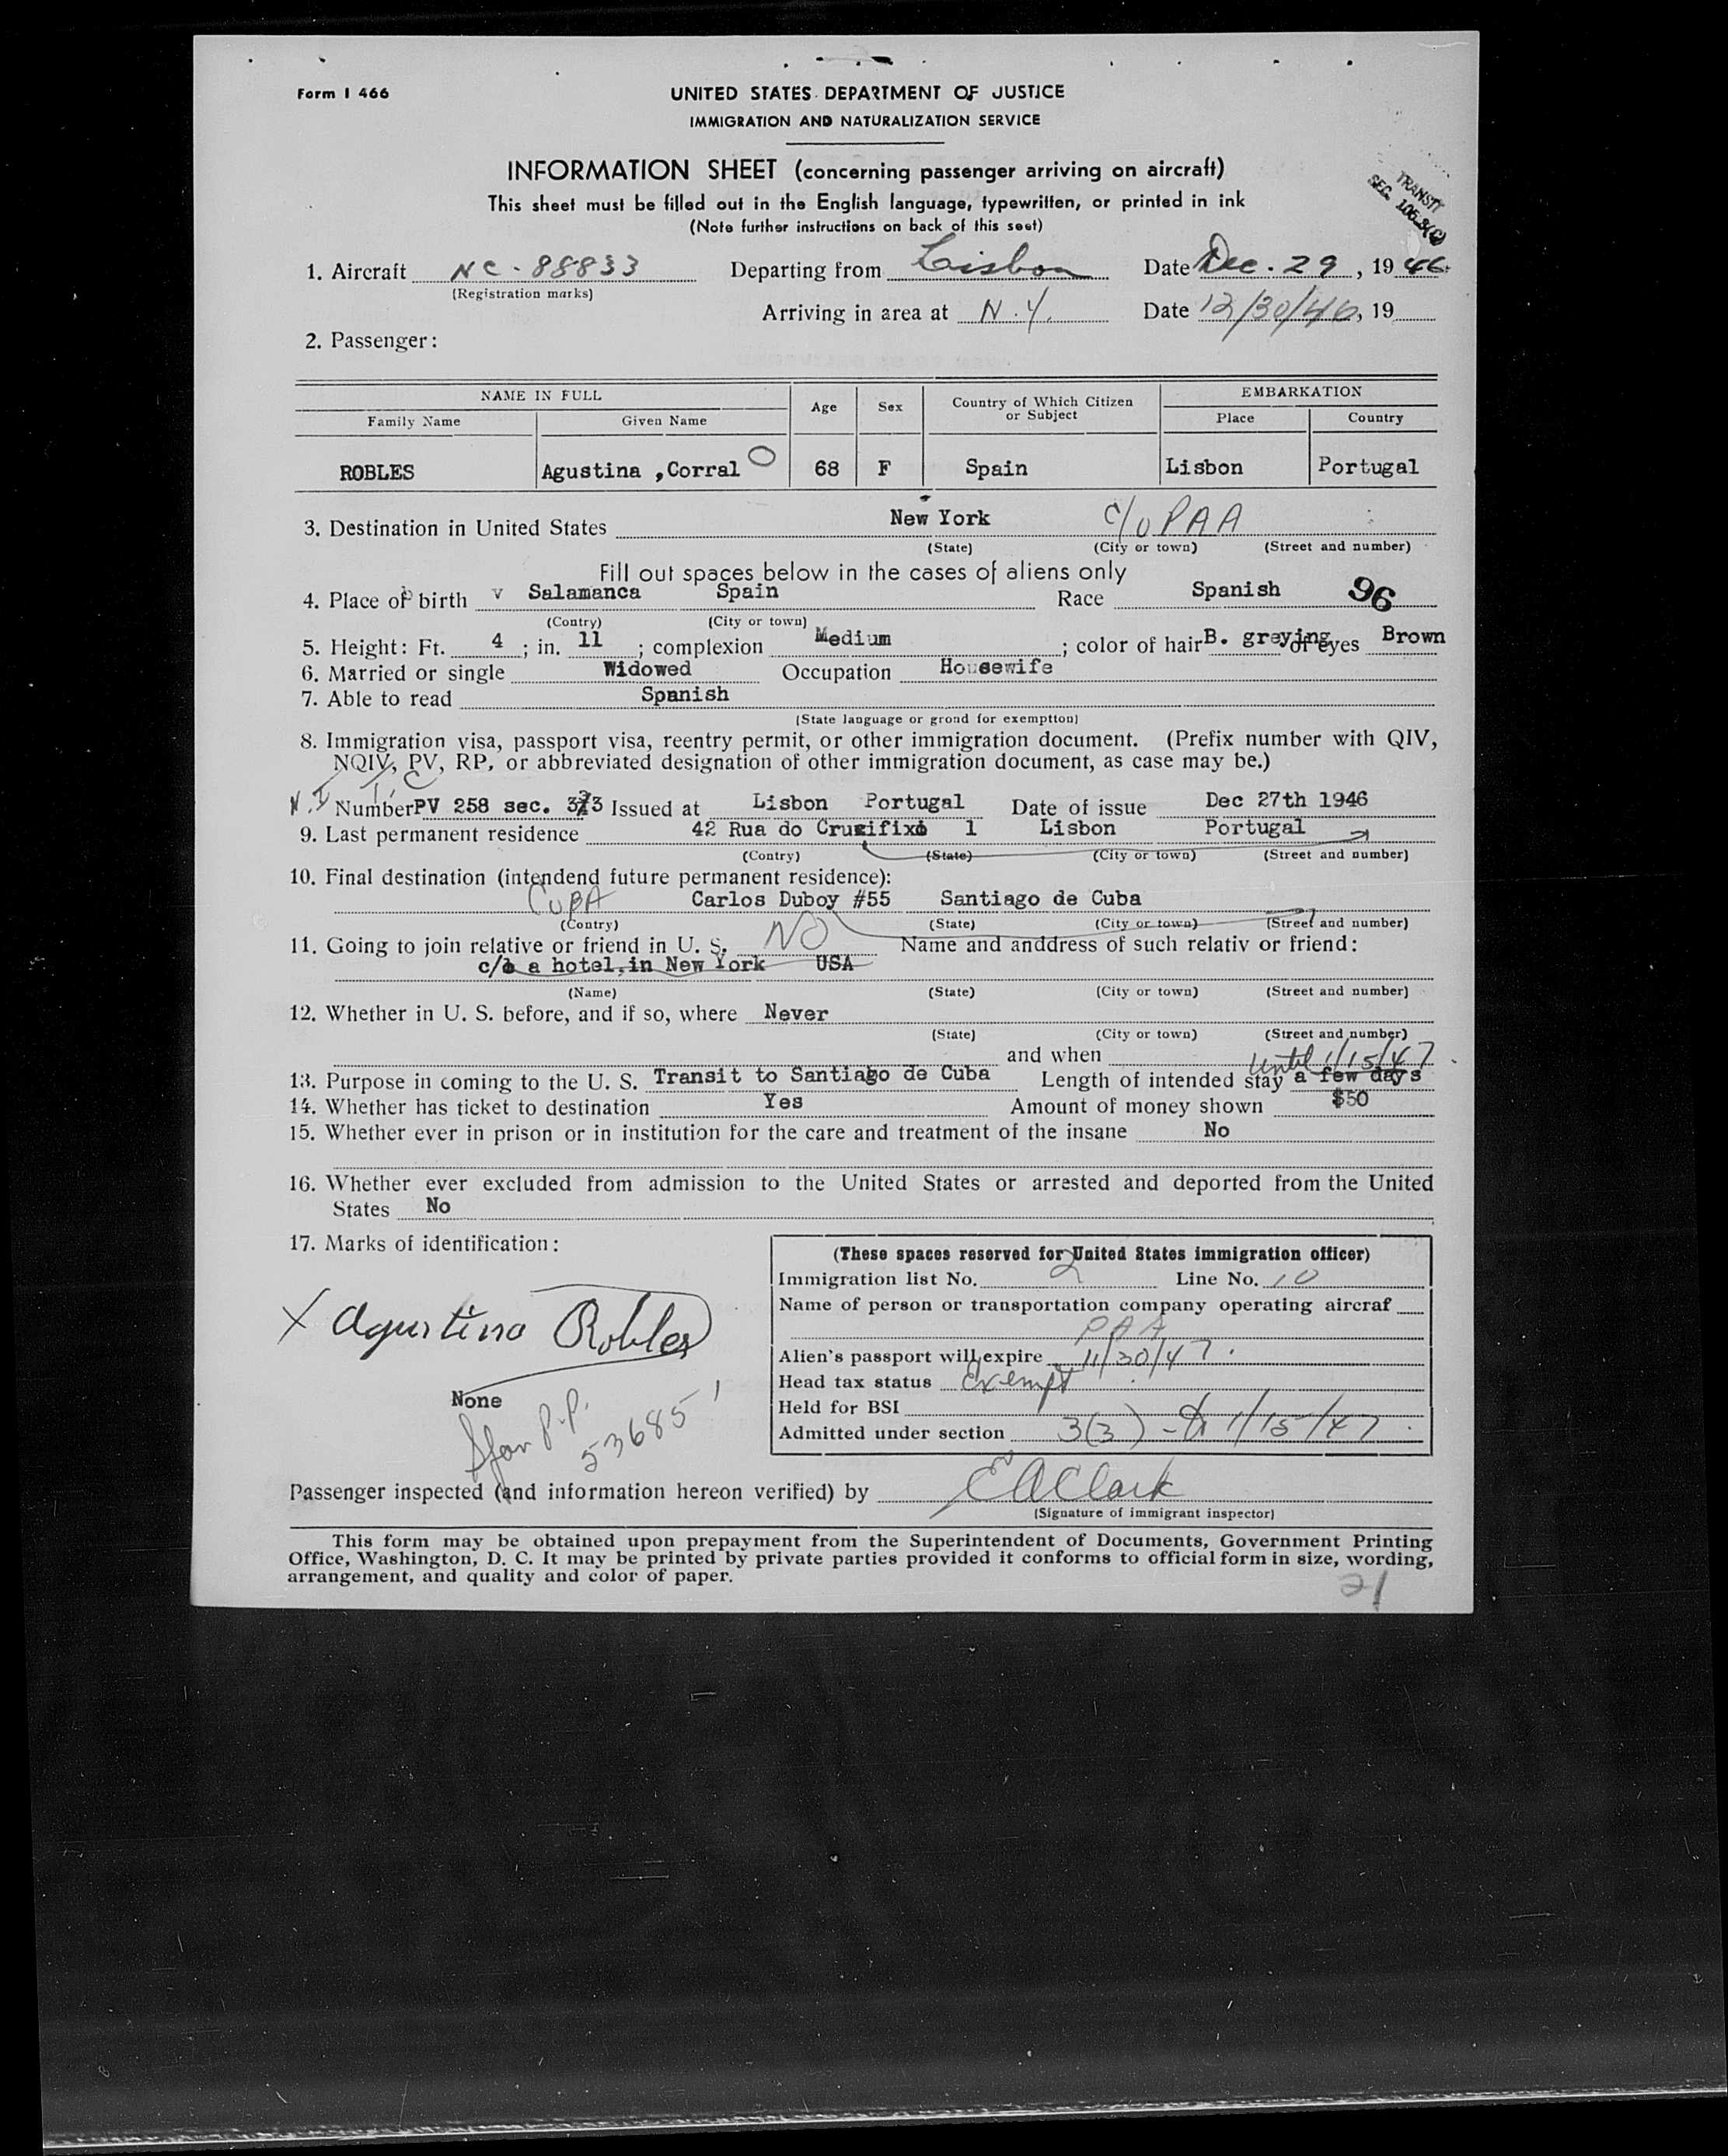 Form I 466
UNITED STATES DEPARTMENT OF JUSTICE
IMMIGRATION AND NATURALIZATION SERVICE
INFORMATION SHEET (concerning passenger arriving on aircraft)
This sheet must be filled out in the English language, typewritten, or printed in ink
(Note further instructions on back of this seet)
TRANSIT
SEC. 105.3(C)
1. Aircraft NC-88833 Departing from Lisbon Date Dec. 29, 1946
(Registration marks)
Arriving in area at N.Y. Date 12/30/46, 19
2. Passenger:
NAME IN FULL Age Sex Country of Which Citizen or Subject EMBARKATION
Family Name Given Name Place Country
ROBLES Agustina ,Corral 68 F Spain Lisbon Portugal
3. Destination in United States New York c/o PAA
(State) (City or town) (Street and number)
Fill out spaces below in the cases of aliens only
4. Place of birth v Salamanca Spain Race Spanish 96
(Contry) (City or town)
5. Height: Ft. 4 ; in. 11 ; complexion Medium ; color of hair B. greying of eyes Brown
6. Married or single Widowed Occupation Housewife
7. Able to read Spanish
(State language or grond for exemption)
8. Immigration visa, passport visa, reentry permit, or other immigration document. (Prefix number with QIV,
NQIV, PV, RP, or abbreviated designation of other immigration document, as case may be.)
Number PV 258 sec. 3 Issued at Lisbon Portugal Date of issue Dec 27th 1946
9. Last permanent residence 42 Rua do Crucifixo 1 Lisbon Portugal
(Contry) (State) (City or town) (Street and number)
10. Final destination (intendend future permanent residence):
CUBA Carlos Duboy #55 Santiago de Cuba
(Contry) (State) (City or town) (Street and number)
11. Going to join relative or friend in U. S. NO Name and anddress of such relativ or friend:
c/o a hotel,in New York USA
(Name) (State) (City or town) (Street and number)
12. Whether in U. S. before, and if so, where Never
(State) (City or town) (Street and number)
and when
until 1/15/47
13. Purpose in coming to the U. S. Transit to Santiago de Cuba Length of intended stay a few days
14. Whether has ticket to destination Yes Amount of money shown $50
15. Whether ever in prison or in institution for the care and treatment of the insane No
16. Whether ever excluded from admission to the United States or arrested and deported from the United
States No
17. Marks of identification:
(These spaces reserved for United States immigration officer)
Immigration list No. 2 Line No. 10
Name of person or transportation company operating aircraf
PAA
X Agustina Robles
Alien's passport will expire 11/30/47.
Head tax status Exempt
None
Held for BSI
Span P.P. 53685
Admitted under section 3(3) - 1/15/47
Passenger inspected (and information hereon verified) by E A Clark
(Signature of immigrant inspector)
This form may be obtained upon prepayment from the Superintendent of Documents, Government Printing
Office, Washington, D. C. It may be printed by private parties provided it conforms to official form in size, wording,
arrangement, and quality and color of paper.
21